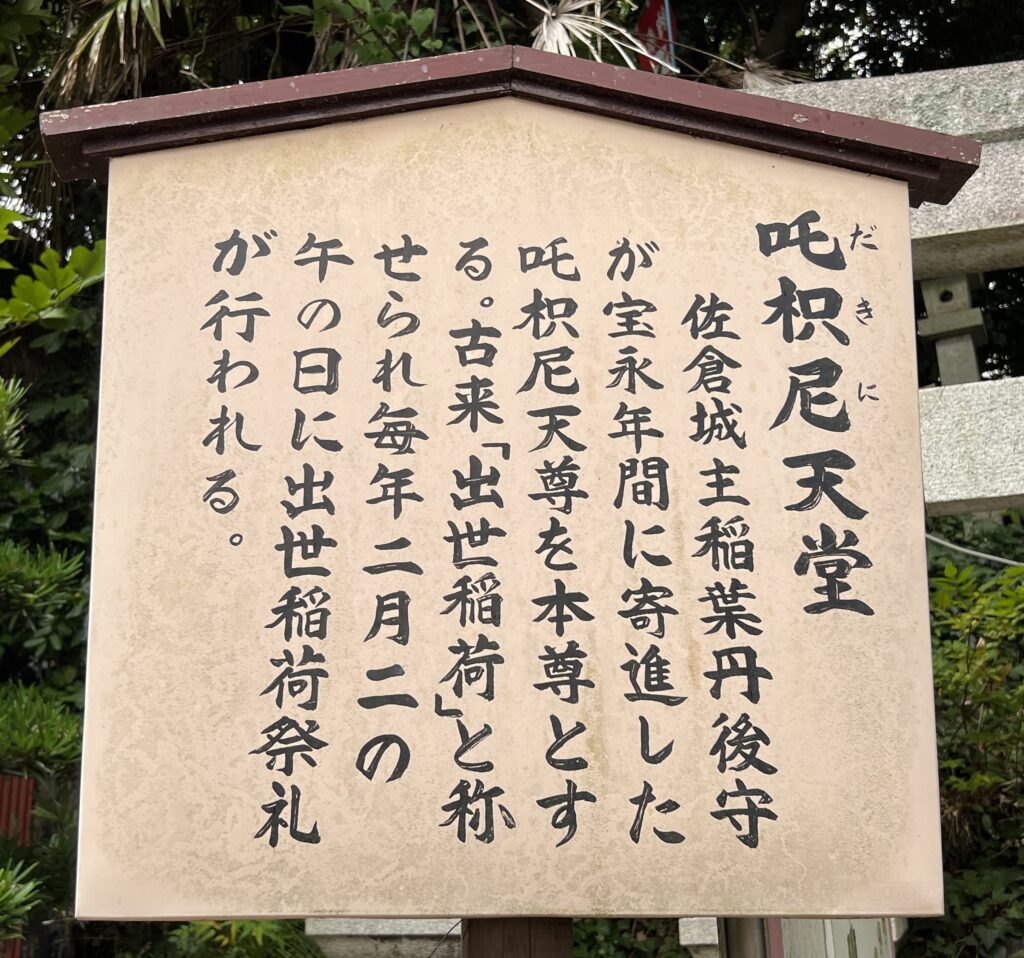 吒枳尼天堂
だきに
佐倉城主稲葉丹後守
が宝永年間に寄進した
吒枳尼天尊を本尊とす
る。古来「出世稲荷」と称
せられ毎年二月二の
午の日に出世稲荷祭礼
が行われる。